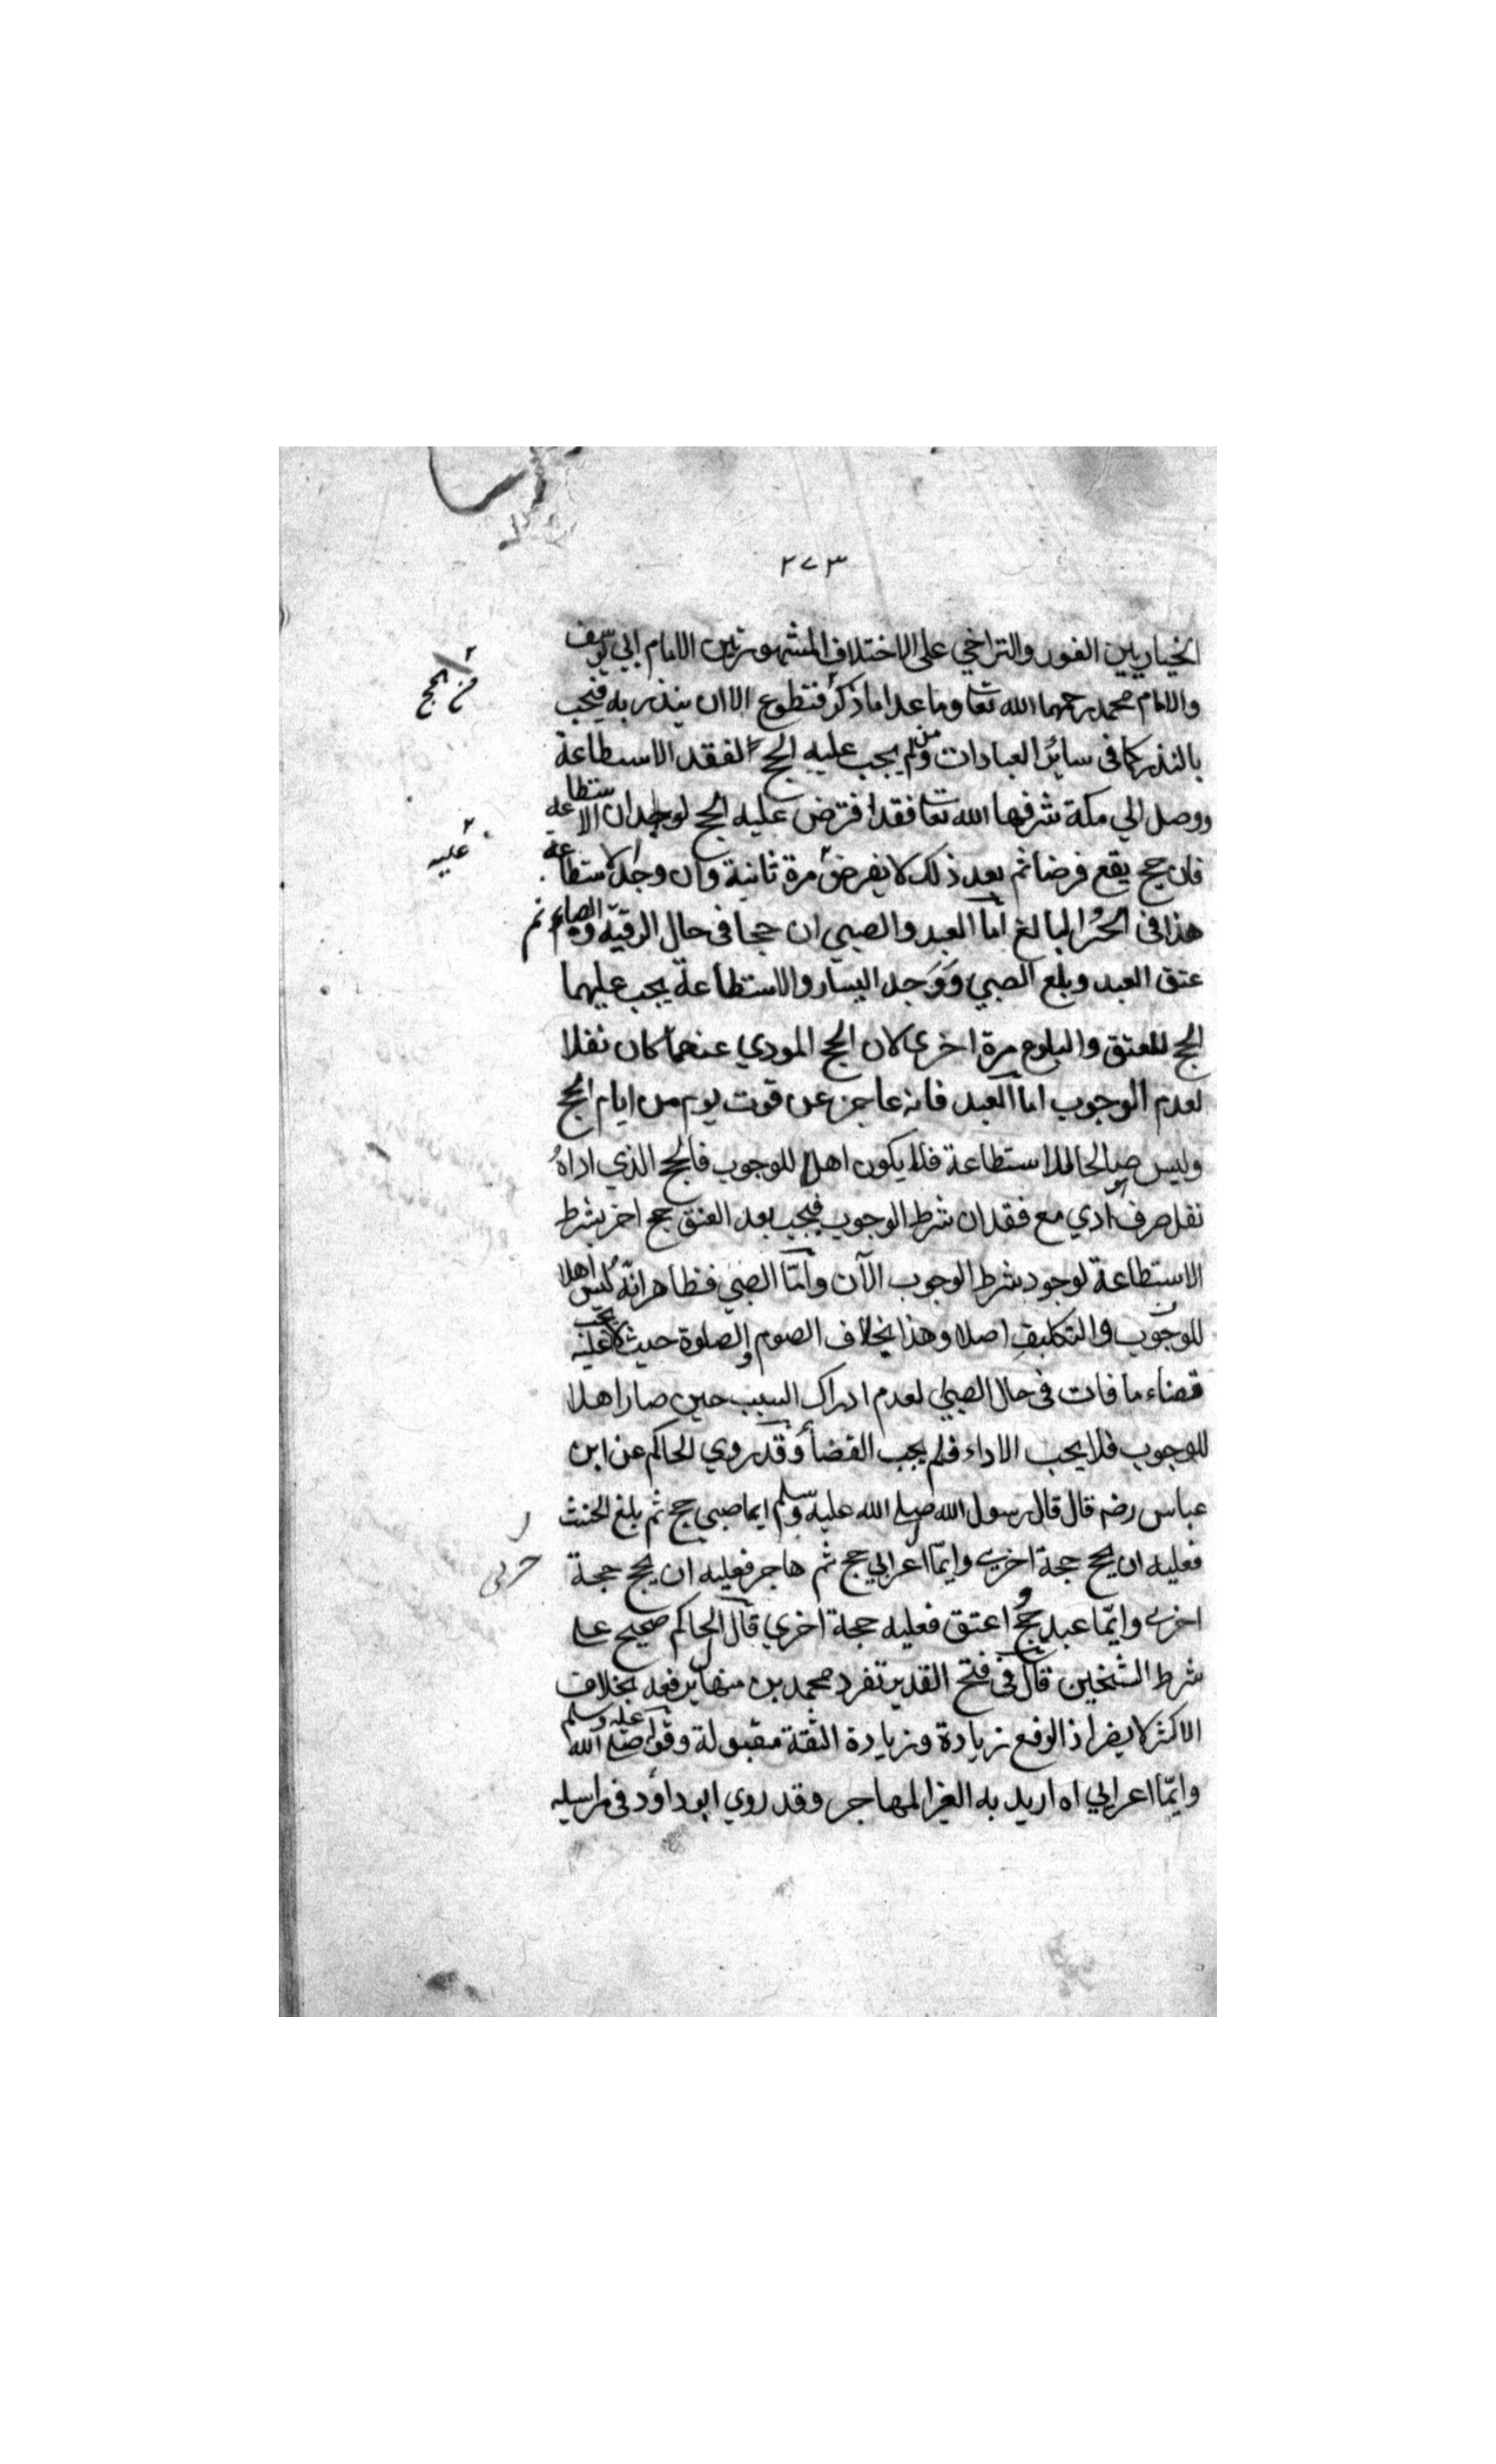 ٢٧٣
الخيار بين الفور والتراخي على الاختلاف المشهور بين الامام ابي يوسف
والامام محمد رحمهما الله تعا وما عدا ما ذكر فتطوع الا ان ينذر به فيجب
بالنذر كما في سائر العبادات ومن لم يجب عليه الحج لفقد الاستطاعة
ووصل الي مكة شرفها الله تعا فقد افترض عليه الحج لوجدان الاستطاعة
فان حج يقع فرضا ثم بعد ذلك لا يفرض مرة ثانية وان وجد الاستطاعة
هذا في الحُر البالغ اما العبد والصبي ان حجا في حال الرقيّة والصباء ثم
عتق العبد وبلغ الصبي وَوَجد اليسار والاستطاعة يجب عليهما
الحج للعتق والبلوغ مرة اخرى لان الحج المودي عنهما كان نفلا
لعدم الوجوب اما العبد فانه عاجز عن قوت يوم من ايام الحج
وليس صالحا للاستطاعة فلا يكون اهلا للوجوب فالحج الذي اداهُ
نفل صرف ادي مع فقدان شرط الوجوب فيجب بعد العتق حج اخر بشرط
الاستطاعة لوجود شرط الوجوب الآن وامّا الصبي فظاهر انّه ليس اهلا
للوجوب والتكليف اصلا وهذا بخلاف الصوم والصلوة حيث لا يجب عليه
قضاء ما فات في حال الصبي لعدم ادراك السبب حين صار اهلا
للوجوب فلا يجب الاداء فلم يجب القضأ وقد روي الحاكم عن ابن
عباس رضه قال قال رسول الله صلي الله عليه وسلم ايما صبي حج ثم بلغ الحنث
فعليه ان يحج حجة اخري وايّما اعرابي حج ثم هاجر فعليه ان يحج حجة
اخري وايّما عبد حج واعتق فعليه حجة اخري قال الحاكم صحيح علي
شرط الشيخين قال في فتح القدير تفرد محمد بن منهال برفعه بخلاف
الاكثر لا يضر اذ الرفع زيادة وزيادة الثقة مقبولة وقوله صلي الله عليه وسلم
وايّما اعرابي اه اريد به الغير المهاجر وقد روي ابو داؤد في مراسيله
عليه